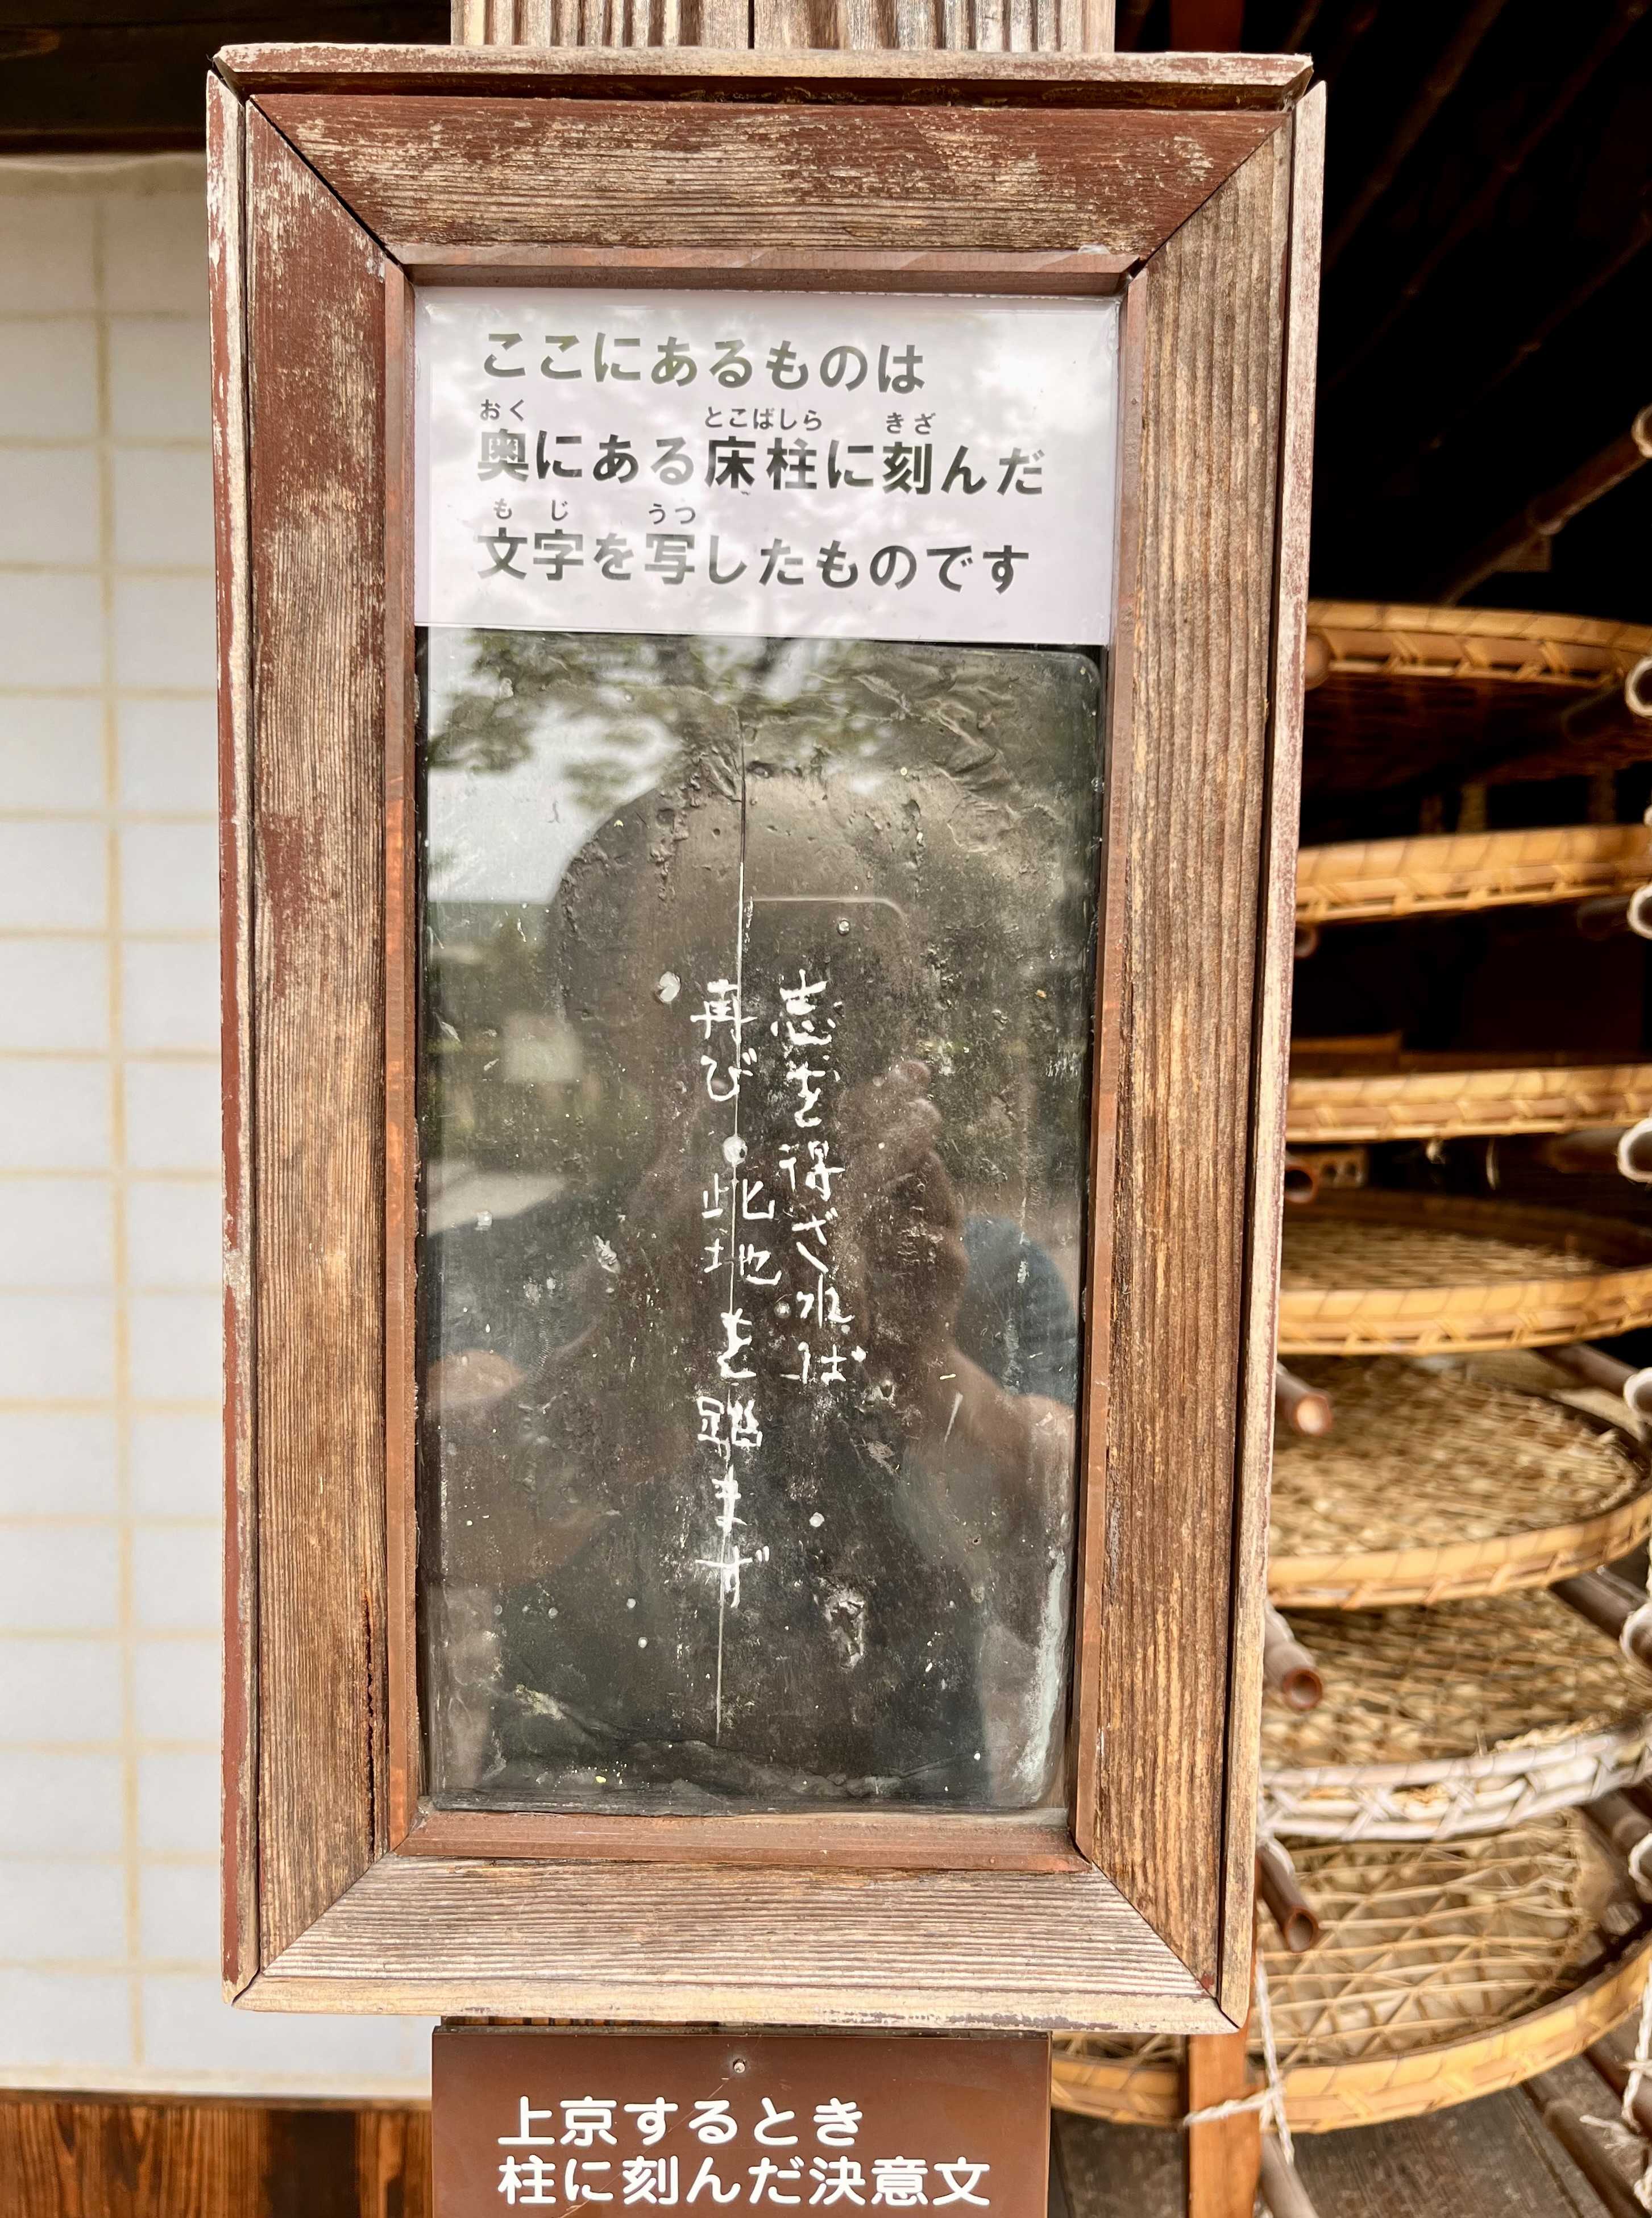 ここにあるものは
おく とこばしら きざ
奥にある床柱に刻んだ
もじ うつ
文字を写したものです
志を得ざれば
再び此地を踏まず
上京するとき
柱に刻んだ決意文